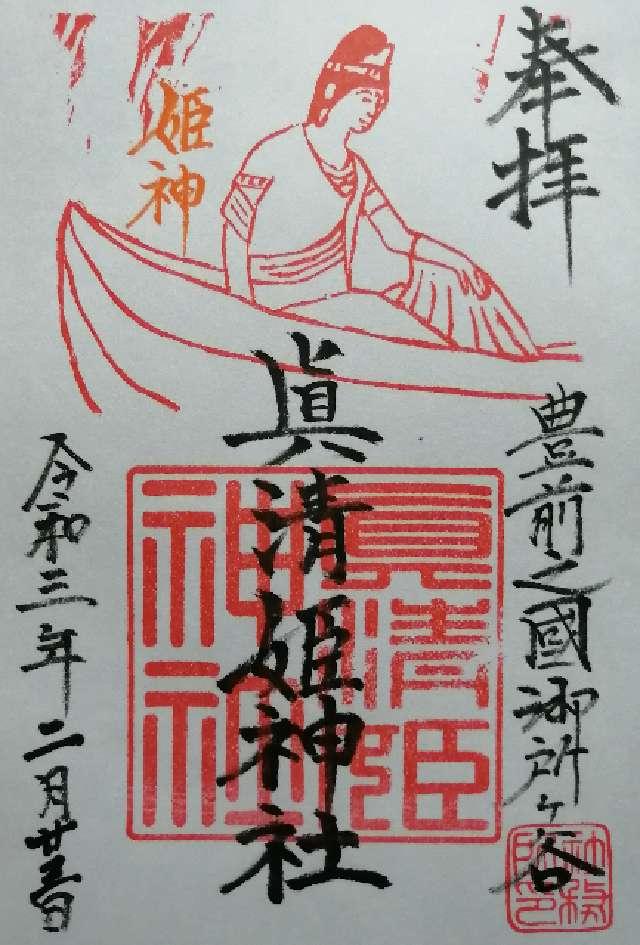 奉拝
豊前之國御所ヶ谷
眞清姫神社
姫神
令和三年二月廿三日
眞清姫
神社